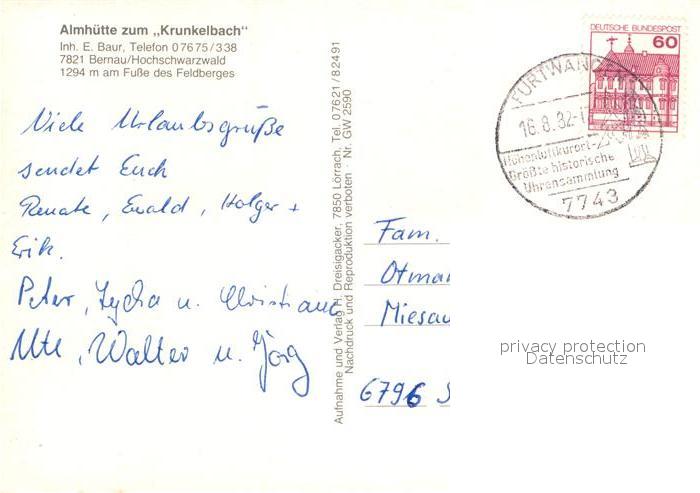 Almhütte zum „Krunkelbach“
Inh. E. Baur, Telefon 07675/338
7821 Bernau/Hochschwarzwald
1294 m am Fuße des Feldberges
Viele Urlaubsgrüße
sendet Euch
Renate, Ewald, Holger +
Erik.
Peter, Lydia u. Christiane
Ute, Walter u. Jörg
Aufnahme und Verlag H. Dreisigacker, 7850 Lörrach, Tel. 07621/82491
Nachdruck und Reproduktion verboten · Nr. GW 2590
DEUTSCHE BUNDESPOST
60
FURTWANGEN
16.8.82
Höhenluftkurort
Größte historische
Uhrensammlung
7743
Fam.
Otmar
Miesau
6796 S
privacy protection
Datenschutz